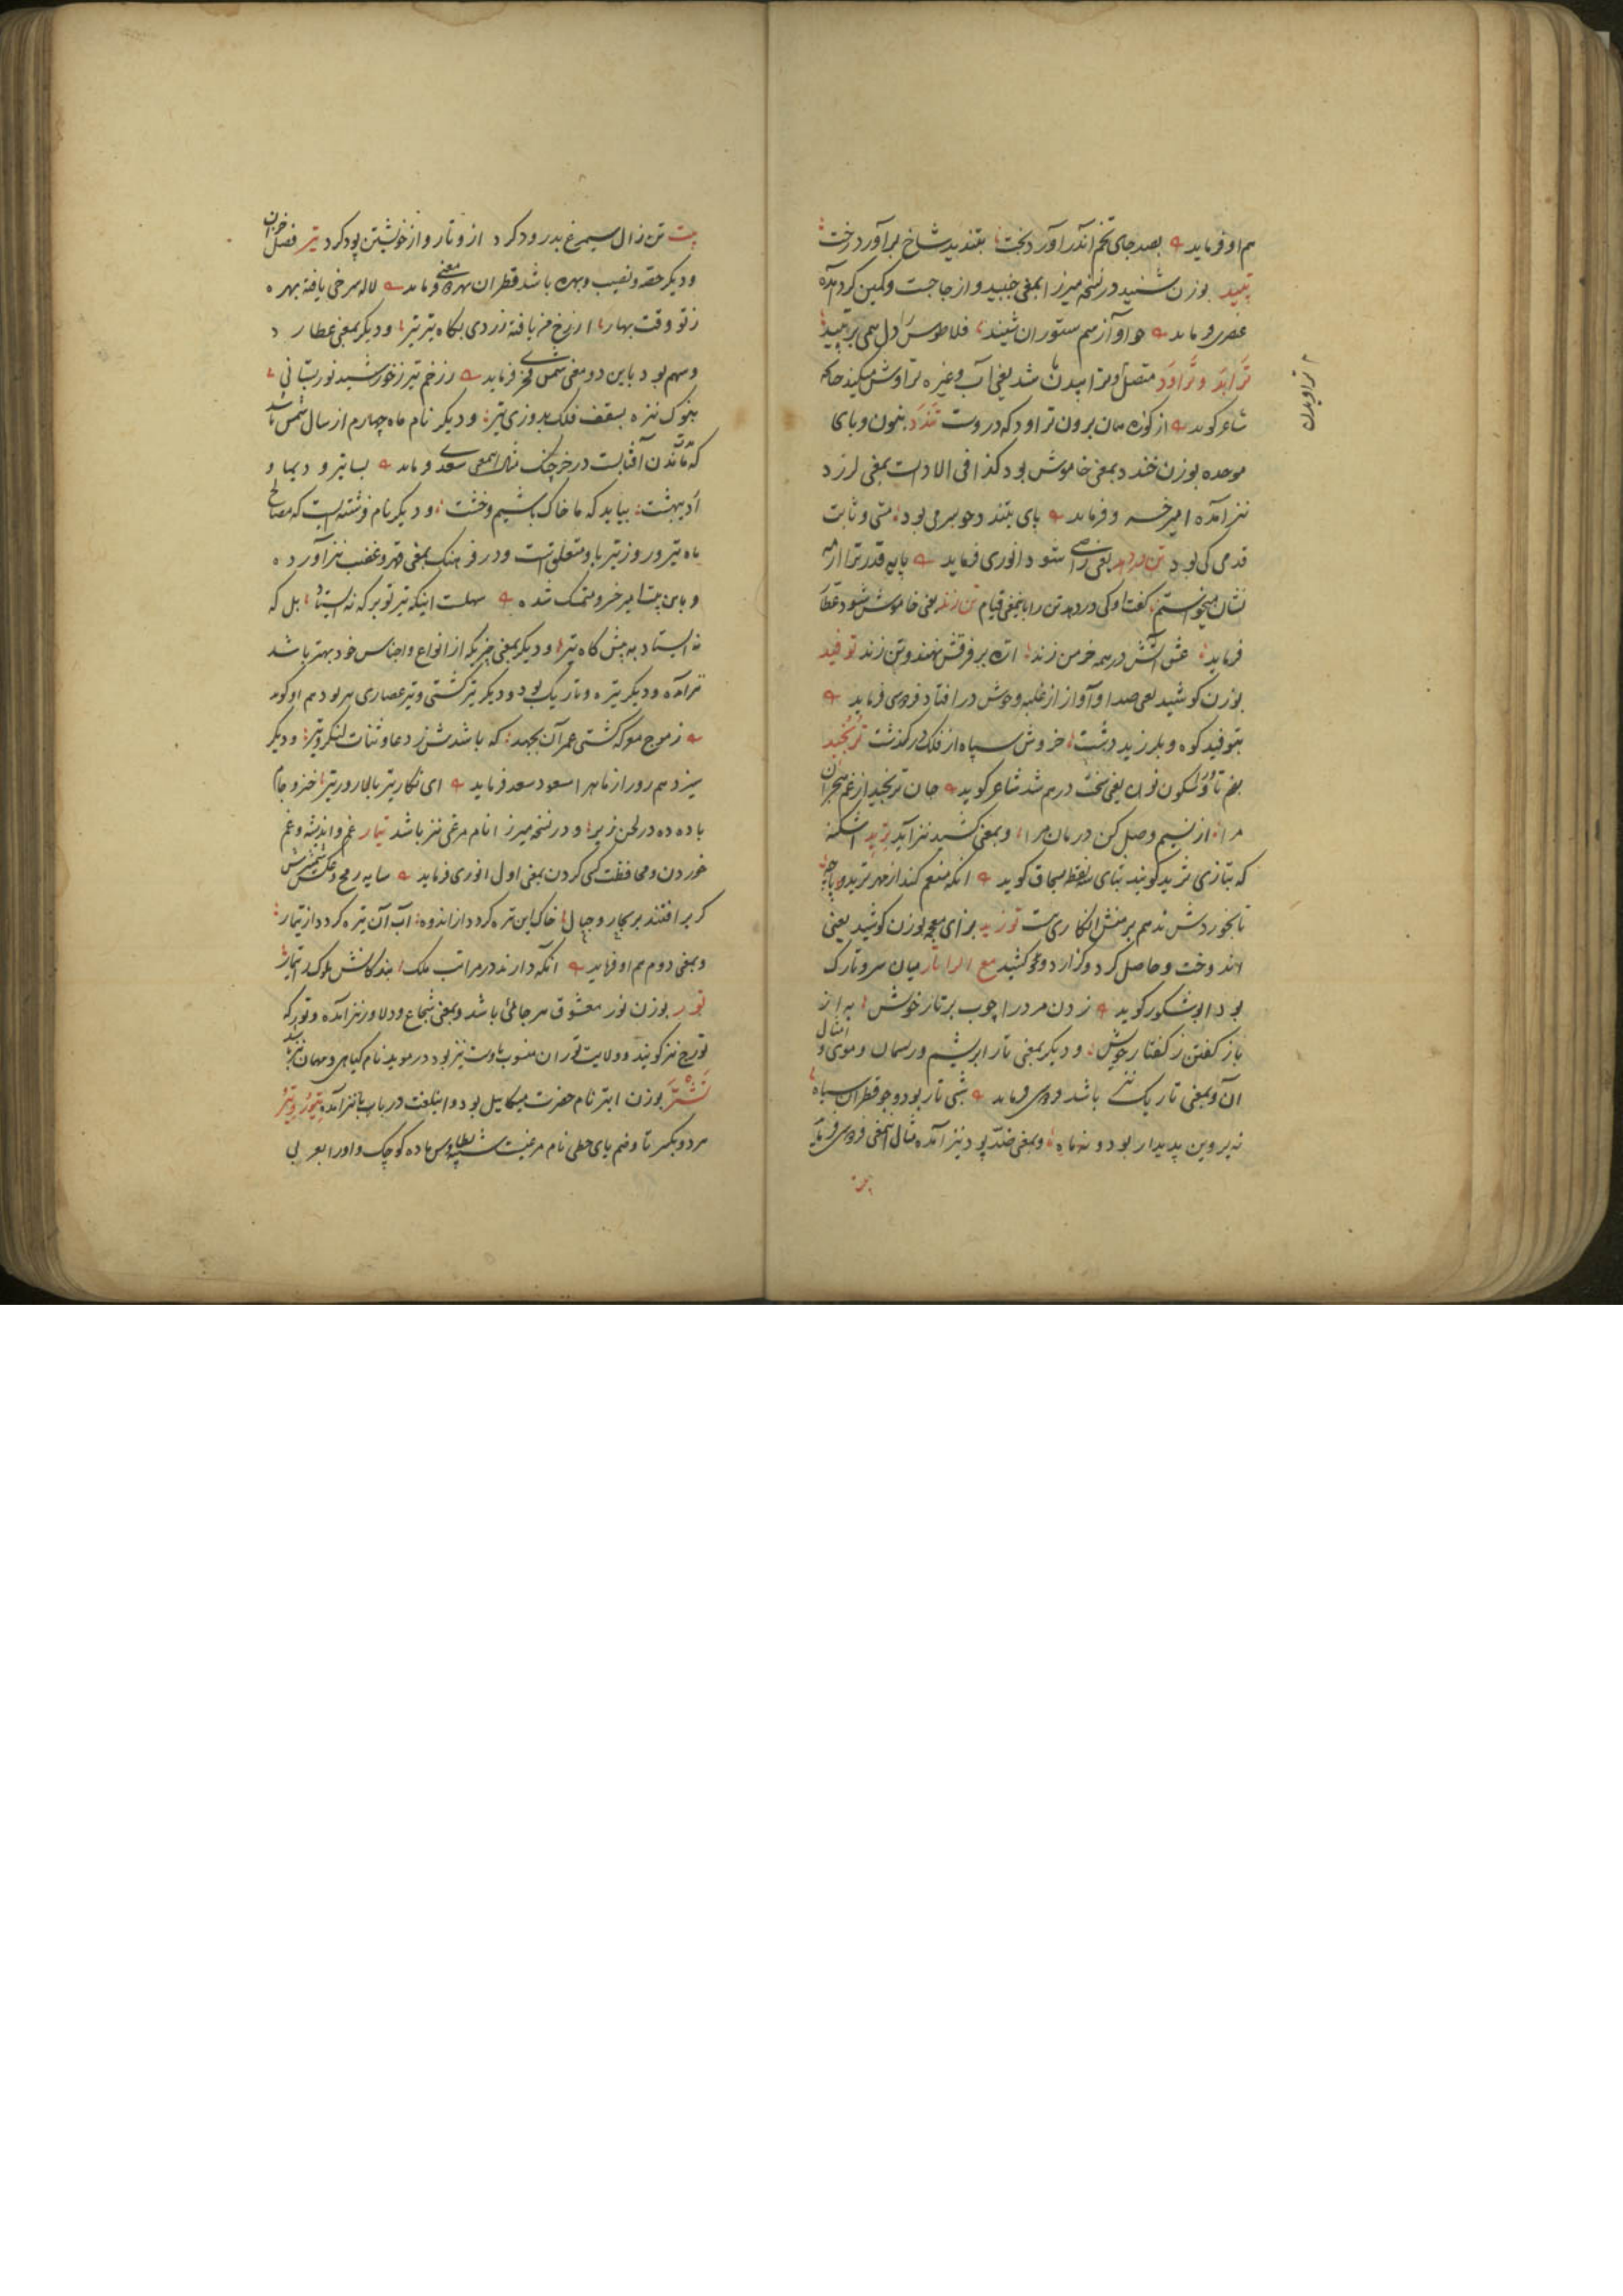 هم او فرماید بصد جای تخم اندر آورد بخت بتندید شاخ برآورد رخت
تپید بوزن شنید در نسخه میرزا بمعنی جنبید و از جا جست و کمین کرد آمده
عنصری فرماید چو آواز سم ستوران شنید فلاطوس را دل همی بر تپید
تراید و تراود متصل و ترابیدن باشد یعنی آب و غیره تراوش میکند چنانکه
شاعر گوید از کوزه همان برون تراود که دروست تندد بنون و بای
موحده بوزن خندد بمعنی خاموش بود کذا فی الادات بمعنی لرزد
نیز آمده امیر خسرو فرماید پای بتندد چو سر می بود مستی و ثابت
قدمی کی بود تن دهد یعنی راضی شود انوری فرماید پایه قدر ترا از مه
نشان میجستم گفت او کی دردهد تن را باینمعنی قیام تن زند یعنی خاموش شود عطار
فرماید عشق آتش در همه خرمن زند اره بر فرقش نهند و تن زند توفید
بوزن کوشید یعنی صدا و آواز از غلبه و جوش در افتاد فردوسی فرماید
بتوفید کوه و بلرزید دشت خروش سپاه از فلک در گذشت ترنجید
بضم تا و را و سکون نون یعنی سخت درهم شد شاعر گوید جان ترنجید از غم هجران
مرا از نسیم وصل کن درمان مرا و بمعنی کشید نیز آید ترید اشکنه
که بتازی ثرید گویند بثای مثلثه بسحاق گوید آنکه منعم کند از مهر ترید و پاچه
تا بخوردش ندهم بر منش انکاری هست توزید بزای معجمه بوزن کوشید یعنی
اندوخت و حاصل کرد و گزارد و کشید مع الرا تار میان سر و تارک
بود ابوشکور گوید زدن مرد را چوب بر تار خویش به از
باز گفتن ز گفتار خویش و دیگر بمعنی تار ابریشم و ریسمان و موی و امثال
آن و بمعنی تاریک نیز باشد فردوسی فرماید شبی تار بود و چو قطران سیاه
نه پروین پدیدار بود و نه ماه و بمعنی ضد پود نیز آمده مثال اینمعنی فردوسی فرماید
تراویدن
بیت تن زال سیمرغ بدرود کرد ازو تار و از خویشتن پود کرد تیر فصل خزان
و دیگر حصه و نصیب و بهره باشد قطران بهر دو معنی فرماید لاله سرخی یافته بهره
ز تو وقت بهار از رخ من یافته زردی بگاه تیر تیر و دیگر بمعنی عطارد
و سهم بود باین دو معنی شمس فخری فرماید ز زخم تیر ز خورشید نور بستانی
بنوک نیزه بسقف فلک بدوزی تیر و دیگر نام ماه چهارم از سال شمسی باشد
که مدت ماندن آفتابست در خرچنگ مثال اینمعنی سعدی فرماید بسا تیر و دیماه و
اردیبهشت بیاید که ما خاک باشیم و خشت و دیگر نام فرشته ایست که مصالح
ماه تیر و روز تیر باو متعلق است و در فرهنگ بمعنی قهر و غضب نیز آورده
و باین بیت امیر خسرو متمسک شده سهلست اینکه تیر تو بر که نه ایستاد بل که
نه ایستاد به پیش گاه تیر و دیگر بمعنی چیزی که از انواع و اجناس خود بهتر باشد
نیز آمده و دیگر تیره و تاریک بود و دیگر تیر کشتی و تیر عصاری بود هم او گوید
ز موج مو که کشتی عمر آن بجهد که باشدش ز دعا و ثنات لنگر و تیر و دیگر
سیزدهم روز از ماهها مسعود سعد فرماید ای نگار تیر بالا روز تیر خیز و جام
باده ده در لحن زیر و در نسخه میرزا نام مرغی نیز باشد تیمار غم و اندیشه و غم
خوردن و محافظت کسی کردن بمعنی اول انوری فرماید سایه رمح و عکس شمشیرش
گر بر افتند بر بحار و جبال خاک این تیره گردد از اندوه آب آن تیره گردد از تیمار
و بمعنی دوم هم او فرماید آنکه دارند در مراتب ملک بندگانش ملوک را تیمار
تور بوزن نور معشوق مهر جائی باشد و بمعنی شجاع و دلاور نیز آمده و تور که
تورج نیز گویند و ولایت توران منسوب باوست نیز بود در موید نام گیاهی و مهمان نیز باشد
تشتر بوزن ابتر نام حضرت میکائیل بود و این لغت در باب با نیز آمده تیجور و تیر
هر دو بکسر تا و ضم یای حطی نام مرغیست شبیه بطاوس ماده کوچک و او را بعربی